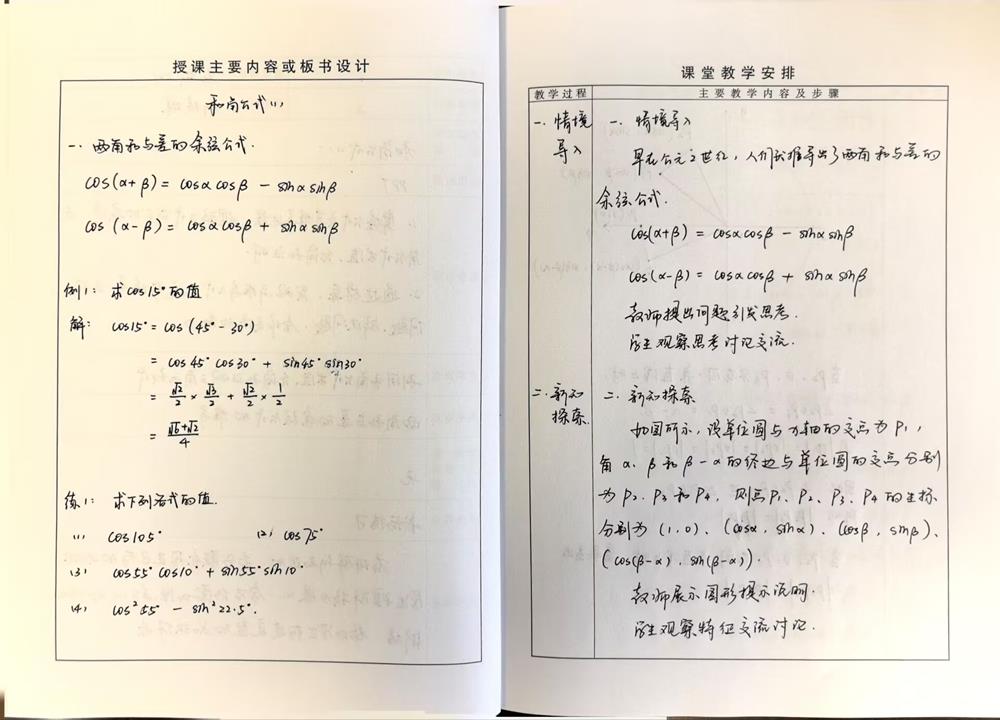 授课主要内容或板书设计
和角公式(1)
一. 两角和与差的余弦公式.
cos(α+β) = cosα cosβ - sinα sinβ
cos (α-β) = cosα cosβ + sinα sinβ
例1: 求cos15°的值
解: cos15° = cos (45°-30°)
= cos45° cos30° + sin45° sin30°
= √2/2 × √3/2 + √2/2 × 1/2
= (√6+√2)/4
练1: 求下列各式的值.
(1) cos105° (2) cos75°
(3) cos55° cos10° + sin55° sin10°
(4) cos²55° - sin²22.5°.
课堂教学安排
教学过程 主要教学内容及步骤
一. 情境导入 一. 情境导入
早在公元2世纪, 人们就推导出了两角和与差的
余弦公式.
cos(α+β) = cosα cosβ - sinα sinβ
cos(α-β) = cosα cosβ + sinα sinβ
教师提出问题引发思考.
学生观察思考讨论交流.
二. 新知探索. 二. 新知探索
如图所示, 设单位圆与x轴的交点为P₁,
角α、β和β-α的终边与单位圆的交点分别
为P₂、P₃和P₄, 则点P₁、P₂、P₃、P₄的坐标
分别为 (1,0)、(cosα, sinα)、(cosβ, sinβ)、
(cos(β-α), sin(β-α)).
教师展示图形提示说明.
学生观察特征交流讨论.